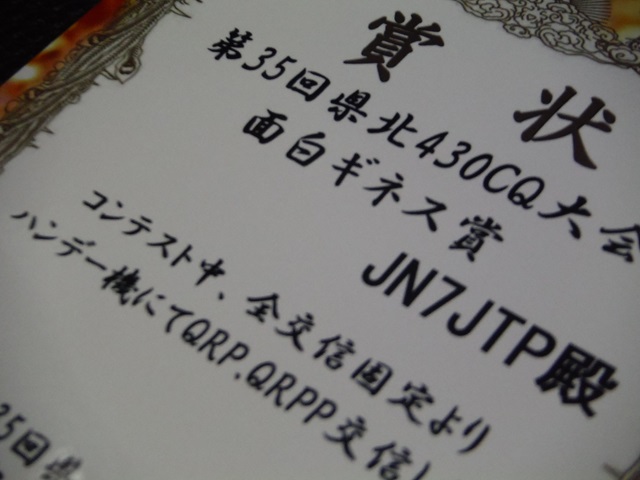 賞状
第35回県北430CQ大会
面白ギネス賞
JN7JTP殿
コンテスト中、全交信固定より
ハンデー機にてQRP.QRPP交信し
35回県